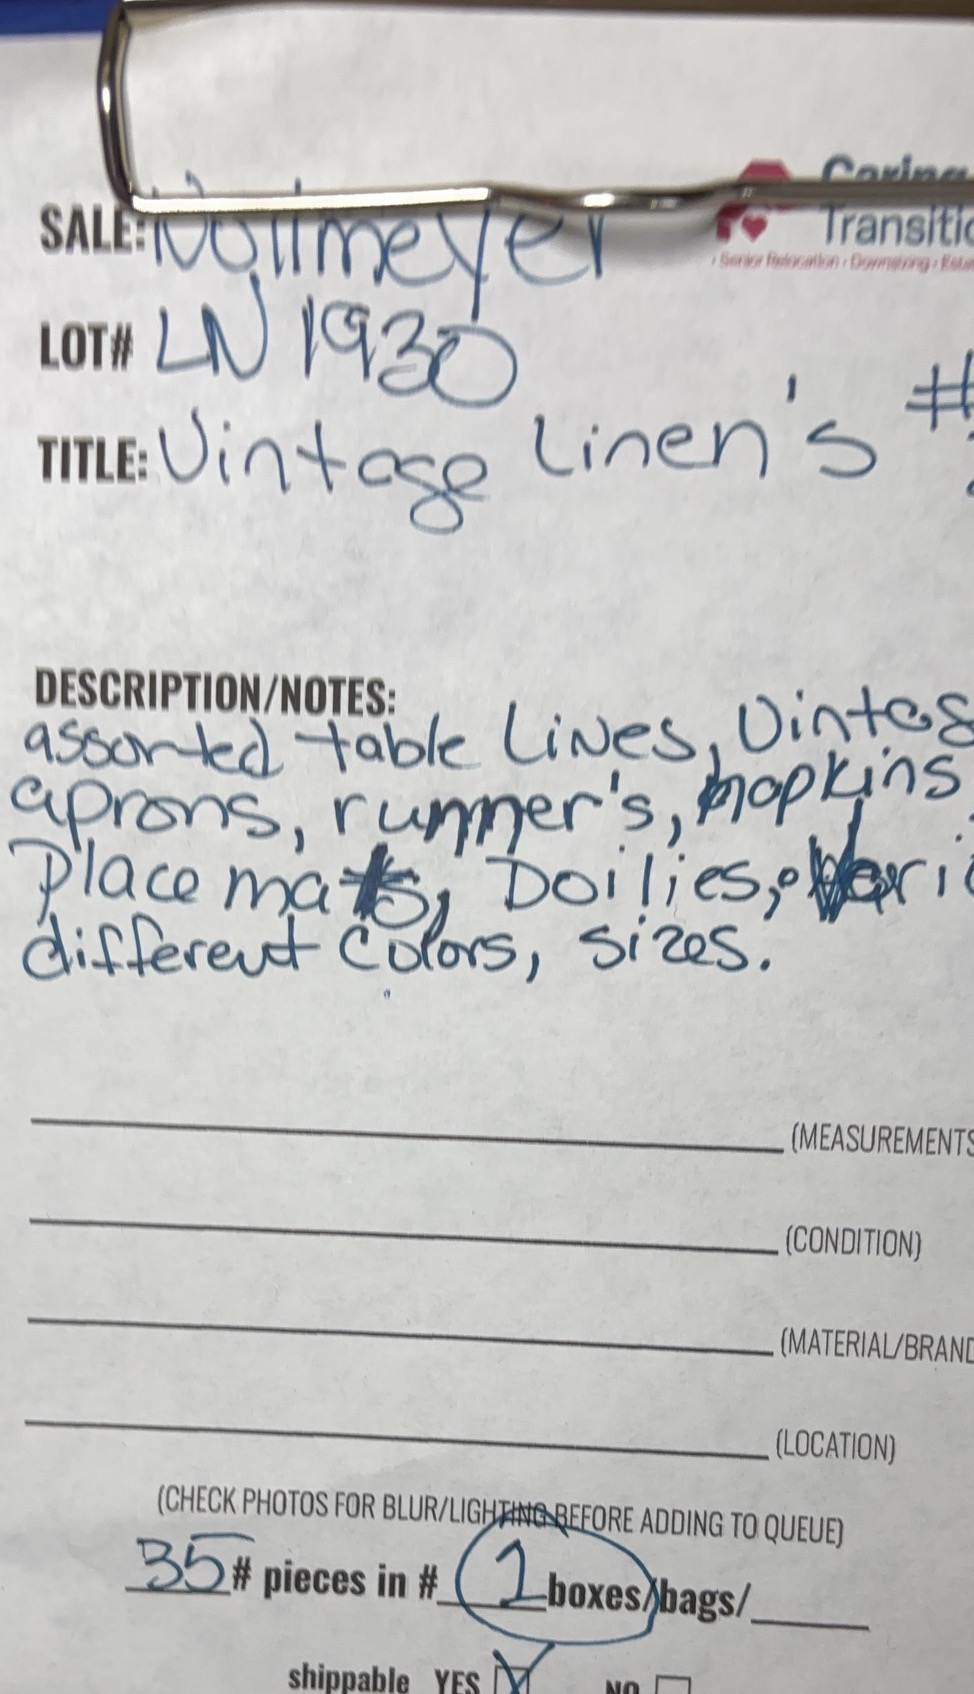 Caring
Transitio
Senior Relocation · Downsizing · Esta
SALE: Nollmeyer
LOT# LN 1930
TITLE: Vintage Linen's #
DESCRIPTION/NOTES:
assorted table Lines, Vintag
aprons, runner's, napkins
Place mats, Doilies,
different Colors, sizes.
(MEASUREMENTS
(CONDITION)
(MATERIAL/BRAND
(LOCATION)
(CHECK PHOTOS FOR BLUR/LIGHTING BEFORE ADDING TO QUEUE)
35 # pieces in # 1 boxes/bags/
shippable YES NO